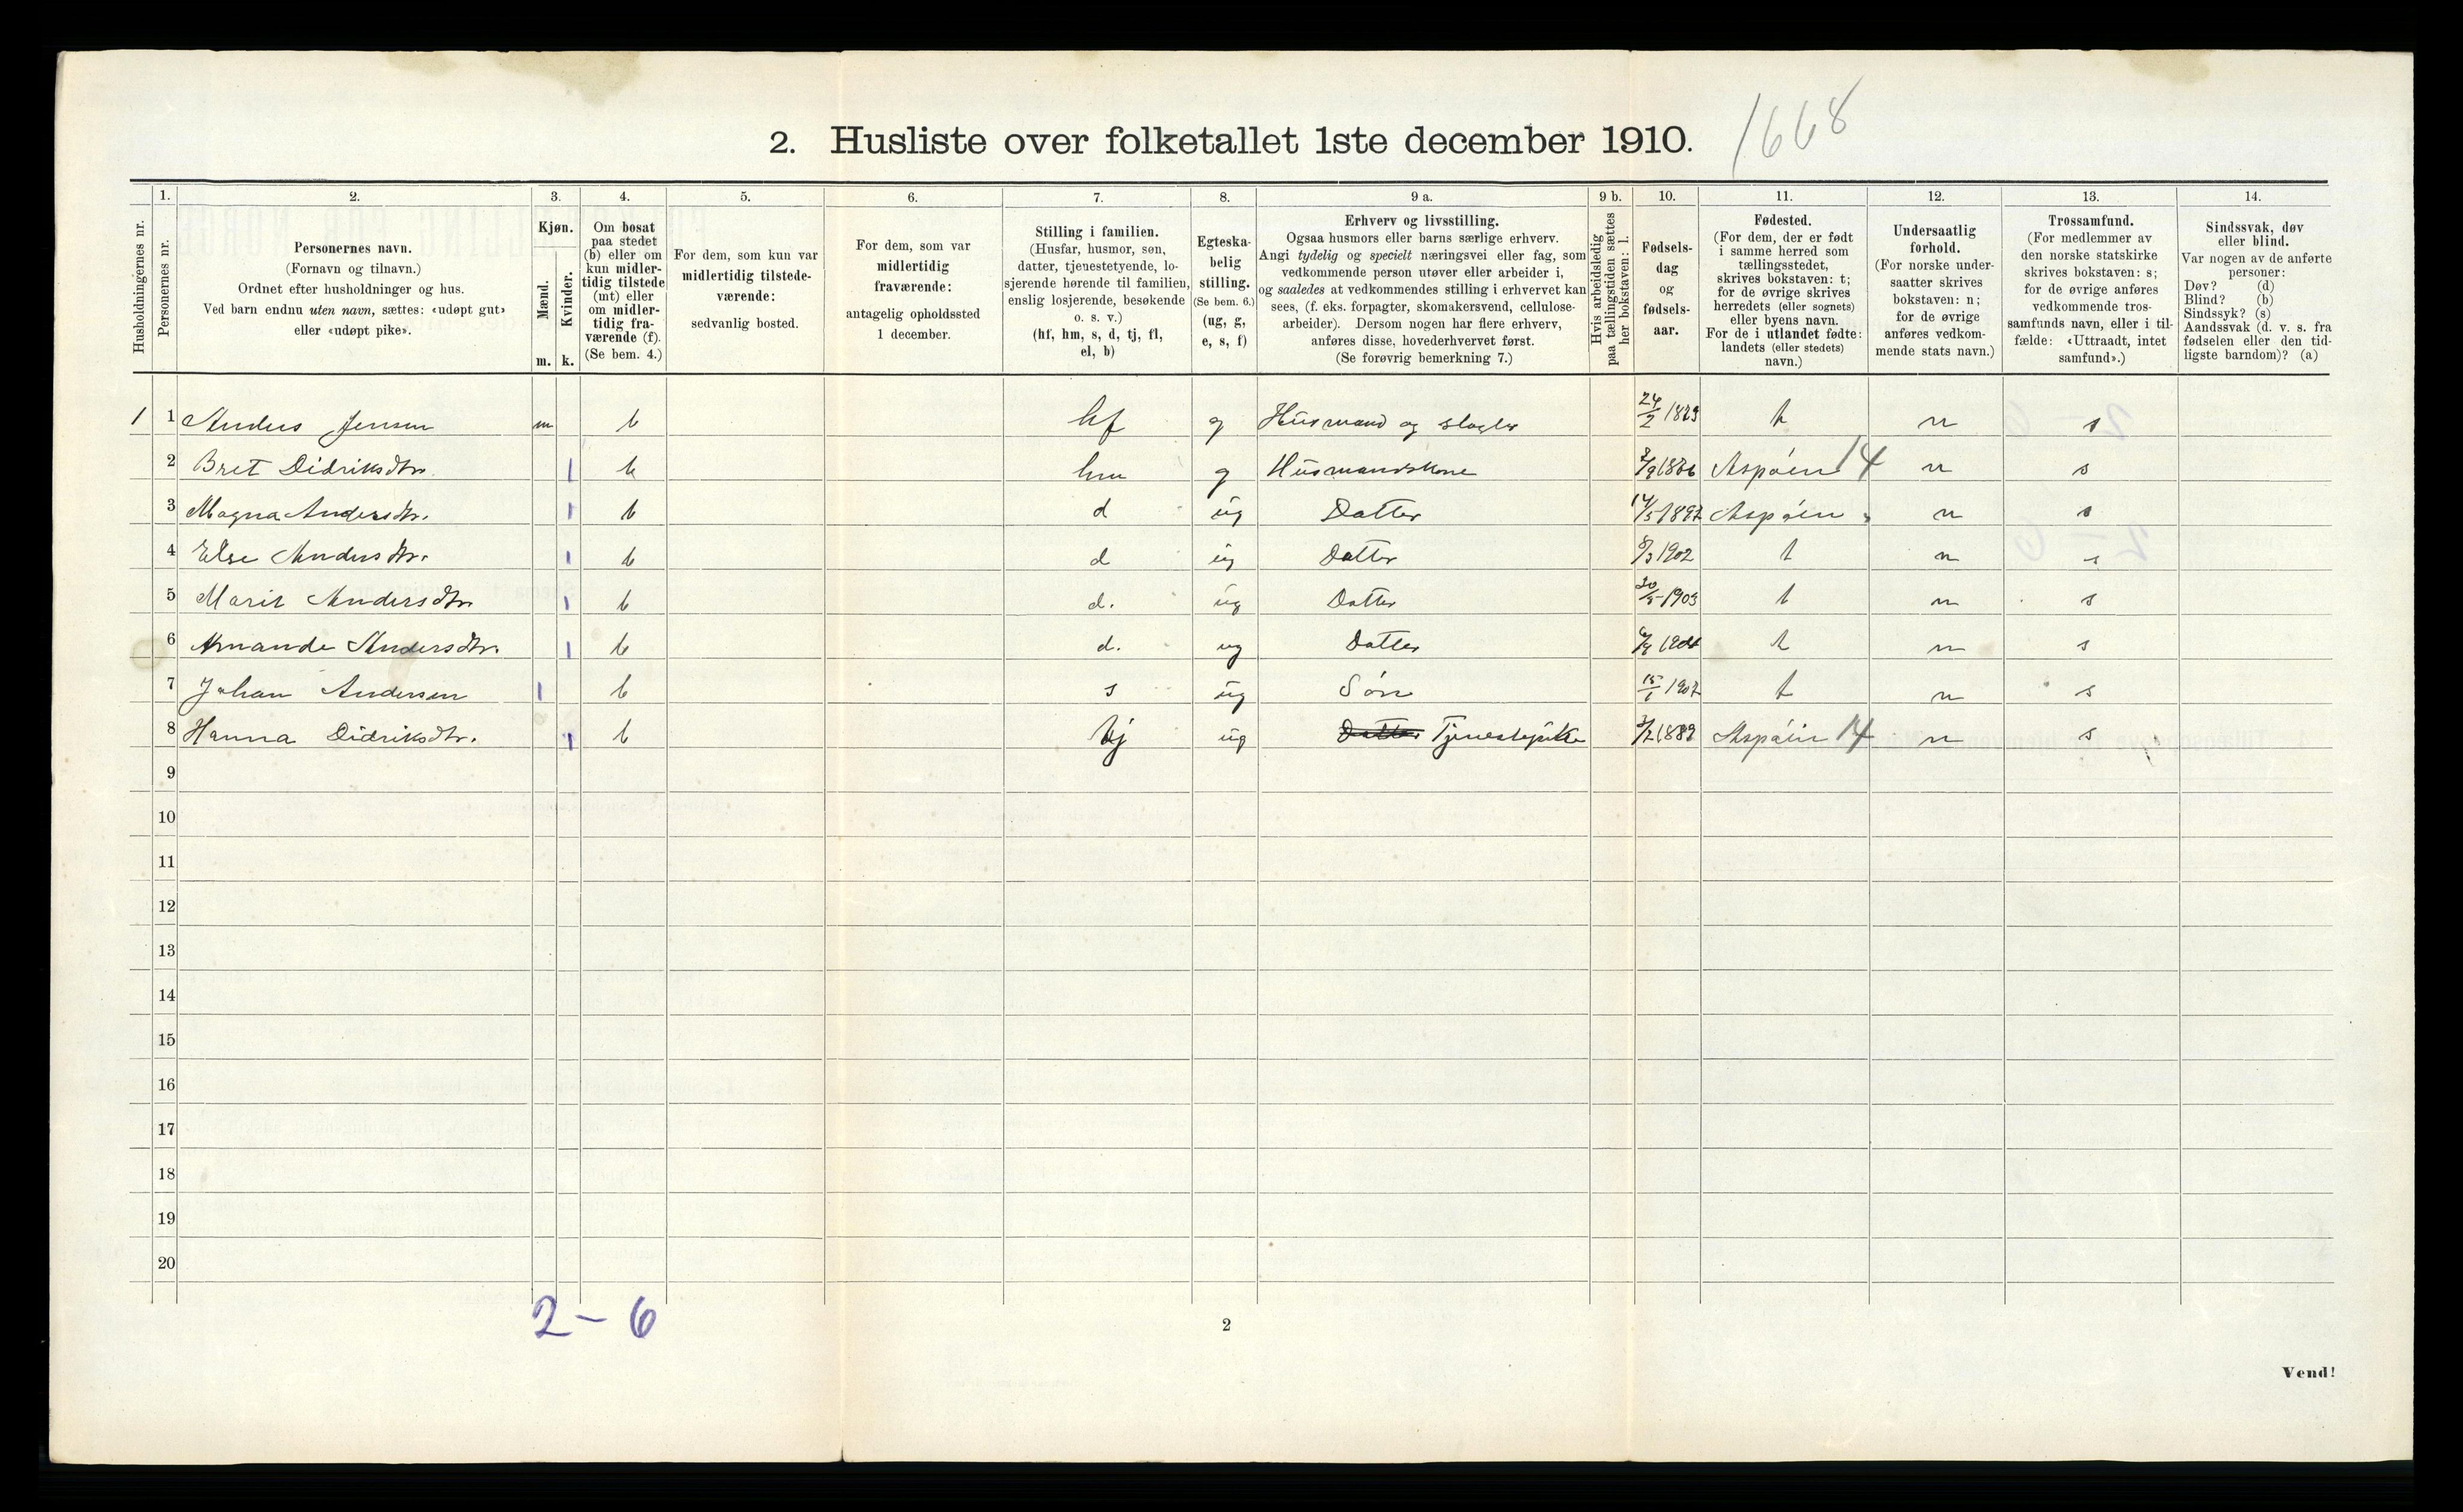 2. Husliste over folketallet 1ste december 1910.
1668
Husholdningernes nr.
1.
Personernes nr.
2.
Personernes navn.
(Fornavn og tilnavn.)
Ordnet efter husholdninger og hus.
Ved barn endnu uten navn, sættes: «udøpt gut»
eller «udøpt pike».
3.
Kjøn.
Mænd.
Kvinder.
m. k.
4.
Om bosat
paa stedet
(b) eller om
kun midler-
tidig tilstede
(mt) eller
om midler-
tidig fra-
værende (f).
(Se bem. 4.)
5.
For dem, som kun var
midlertidig tilstede-
værende:
sedvanlig bosted.
6.
For dem, som var
midlertidig
fraværende:
antagelig opholdssted
1 december.
7.
Stilling i familien.
(Husfar, husmor, søn,
datter, tjenestetyende, lo-
sjerende hørende til familien,
enslig losjerende, besøkende
o. s. v.)
(hf, hm, s, d, tj, fl,
el, b)
8.
Egteska-
belig
stilling.
(Se bem. 6.)
(ug, g,
e, s, f)
9 a.
Erhverv og livsstilling.
Ogsaa husmors eller barns særlige erhverv.
Angi tydelig og specielt næringsvei eller fag, som
vedkommende person utøver eller arbeider i,
og saaledes at vedkommendes stilling i erhvervet kan
sees, (f. eks. forpagter, skomakersvend, cellulose-
arbeider). Dersom nogen har flere erhverv,
anføres disse, hovederhvervet først.
(Se forøvrig bemerkning 7.)
9 b.
Hvis arbeidsledig
paa tællingstiden sættes
her bokstaven: l.
10.
Fødsels-
dag
og
fødsels-
aar.
11.
Fødested.
(For dem, der er født
i samme herred som
tællingsstedet,
skrives bokstaven: t;
for de øvrige skrives
herredets (eller sognets)
eller byens navn.
For de i utlandet fødte:
landets (eller stedets)
navn.)
12.
Undersaatlig
forhold.
(For norske under-
saatter skrives
bokstaven: n;
for de øvrige
anføres vedkom-
mende stats navn.)
13.
Trossamfund.
(For medlemmer av
den norske statskirke
skrives bokstaven: s;
for de øvrige anføres
vedkommende tros-
samfunds navn, eller i til-
fælde: «Uttraadt, intet
samfund».)
14.
Sindssvak, døv
eller blind.
Var nogen av de anførte
personer:
Døv? (d)
Blind? (b)
Sindssyk? (s)
Aandssvak (d. v. s. fra
fødselen eller den tid-
ligste barndom)? (a)
1 1 Anders Jensen m b hf g Husmand og slagter 24/2 t n s
2 Bret Didriksdtr. | b hm g Husmandskone Aspøien 14 n s
3 Magna Andersdtr. | b d ug Datter 14/5 1897 Aspøien " n s
4 Else Andersdtr. | b d ug Datter 8/3 1902 t n s
5 Marit Andersdtr | b d. ug Datter 20/5 1903 t n s
6 Amanda Andersdtr. | b d. ug Datter t n s
7 Johan Andersen | b s ug Søn 15/1 1907 t n s
8 Hanna Didriksdtr. | b tj ug Datter Tjenestepike Aspøien 14 n s
9
10
11
12
13
14
15
16
17
18
19
20
2 - 6
2
Vend!